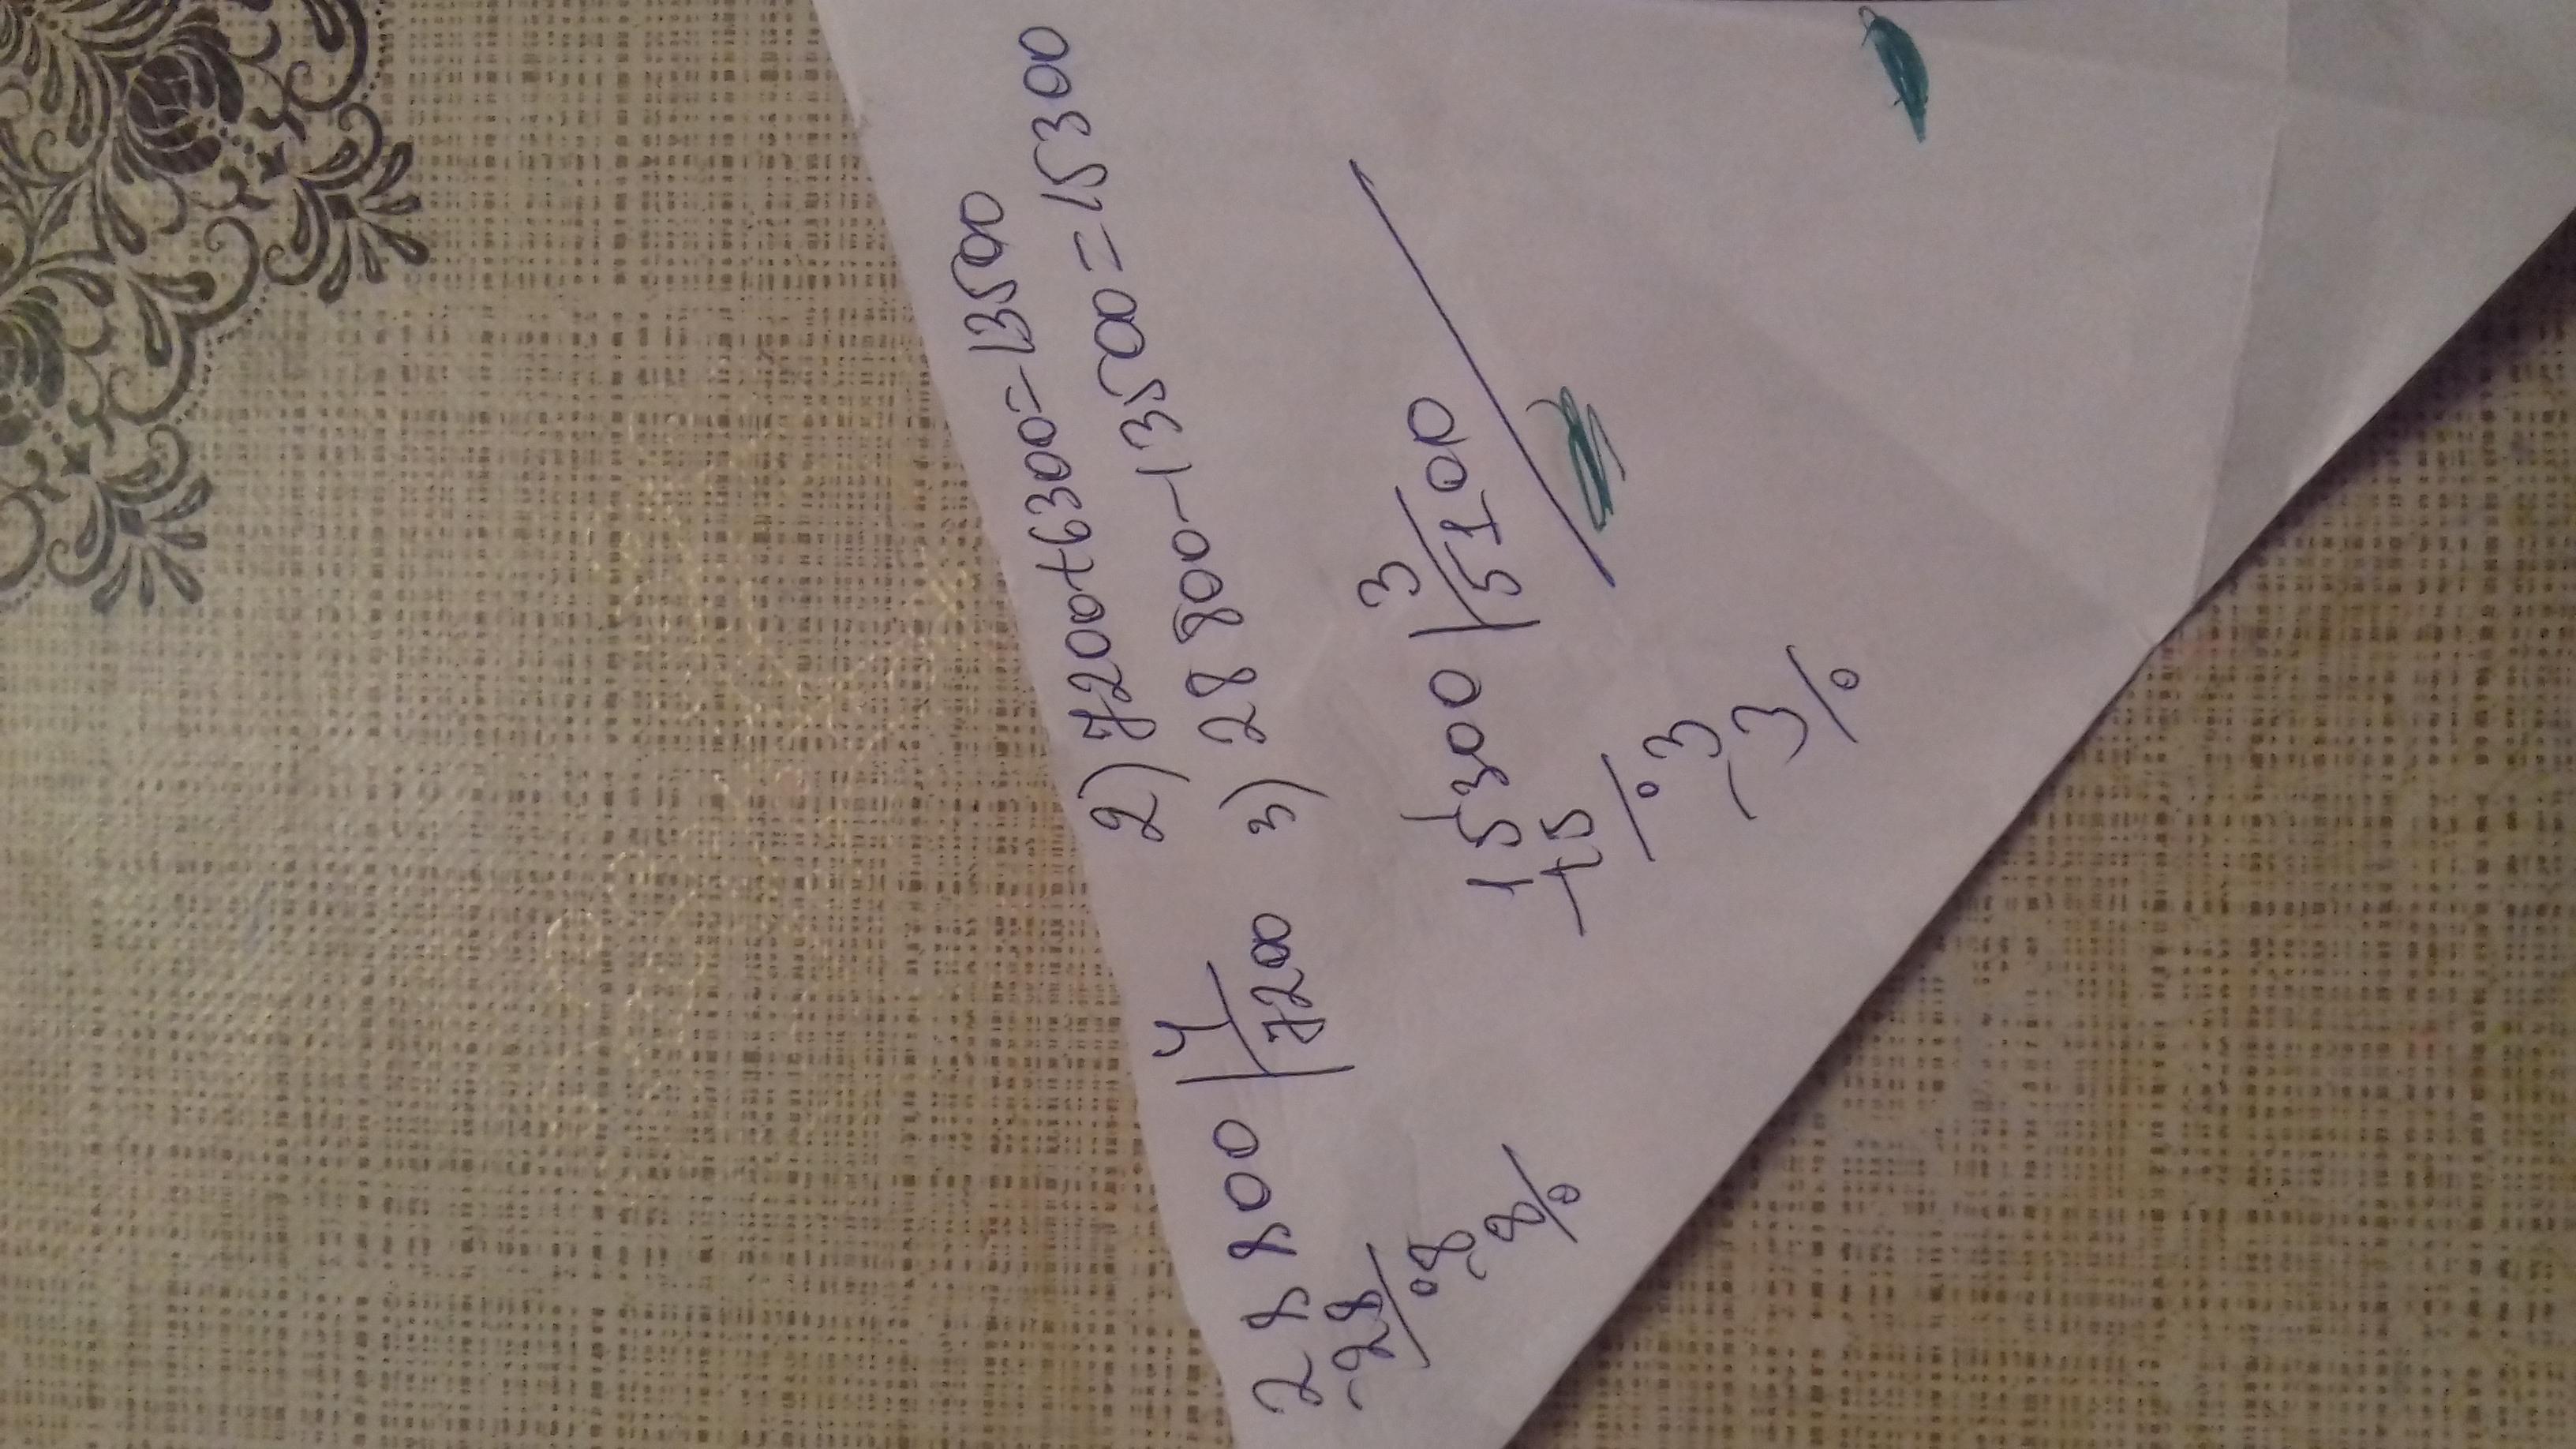 2) 7200+6300=13500
3) 28 800-13500=15300
28 800 | 4
-28 | 7200
08
-8
0
15300 | 3
-15 | 5100
03
-3
0